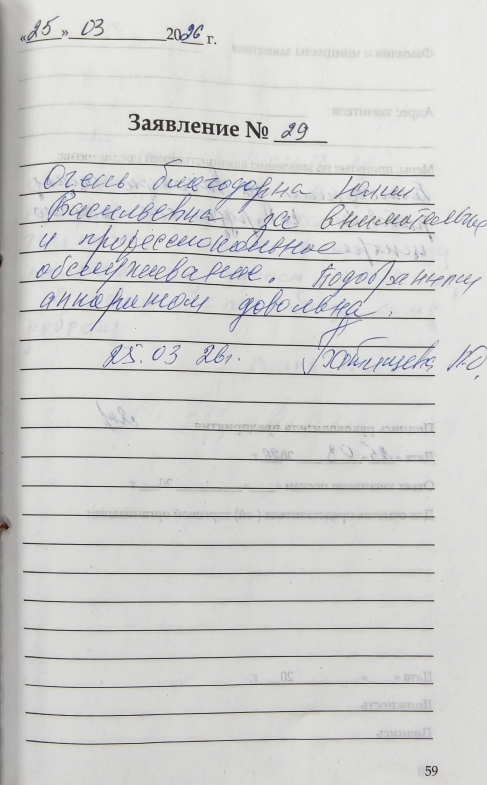 «25» 03 2026 г.
Заявление № 29
Очень благодарна Юлии
Васильевна за внимательное
и профессиональное
обслуживание. Подобранным
аппаратом довольна.
25.03 26г.
59